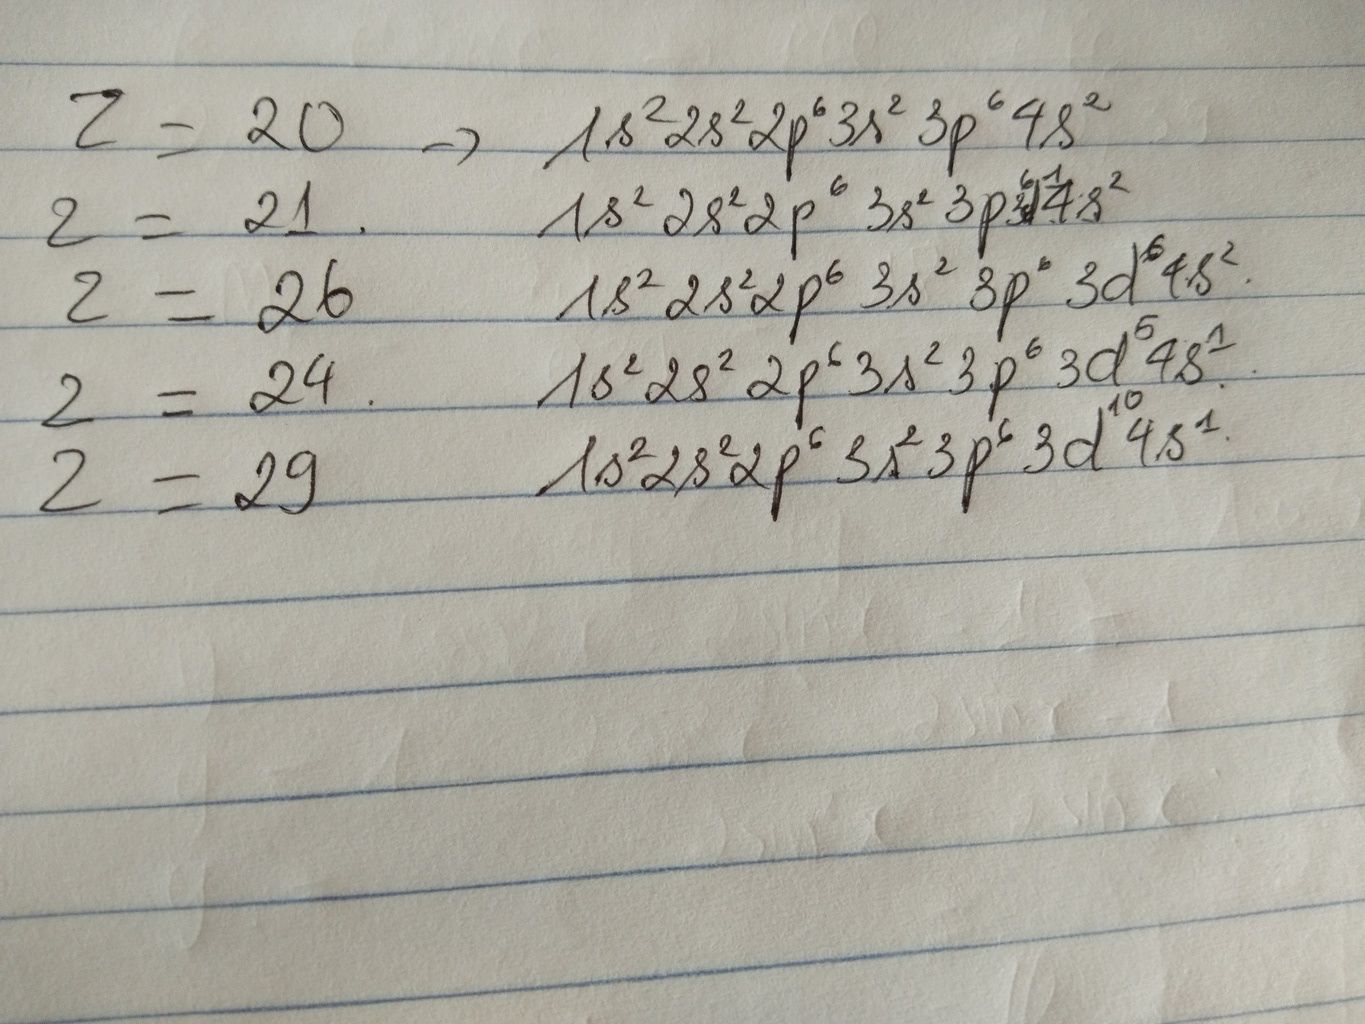 Z = 20 → 1s² 2s² 2p⁶ 3s² 3p⁶ 4s²
Z = 21. 1s² 2s² 2p⁶ 3s² 3p⁶ 3d¹ 4s²
Z = 26 1s² 2s² 2p⁶ 3s² 3p⁶ 3d⁶ 4s².
Z = 24. 1s² 2s² 2p⁶ 3s² 3p⁶ 3d⁵ 4s¹.
Z = 29 1s² 2s² 2p⁶ 3s² 3p⁶ 3d¹⁰ 4s¹.